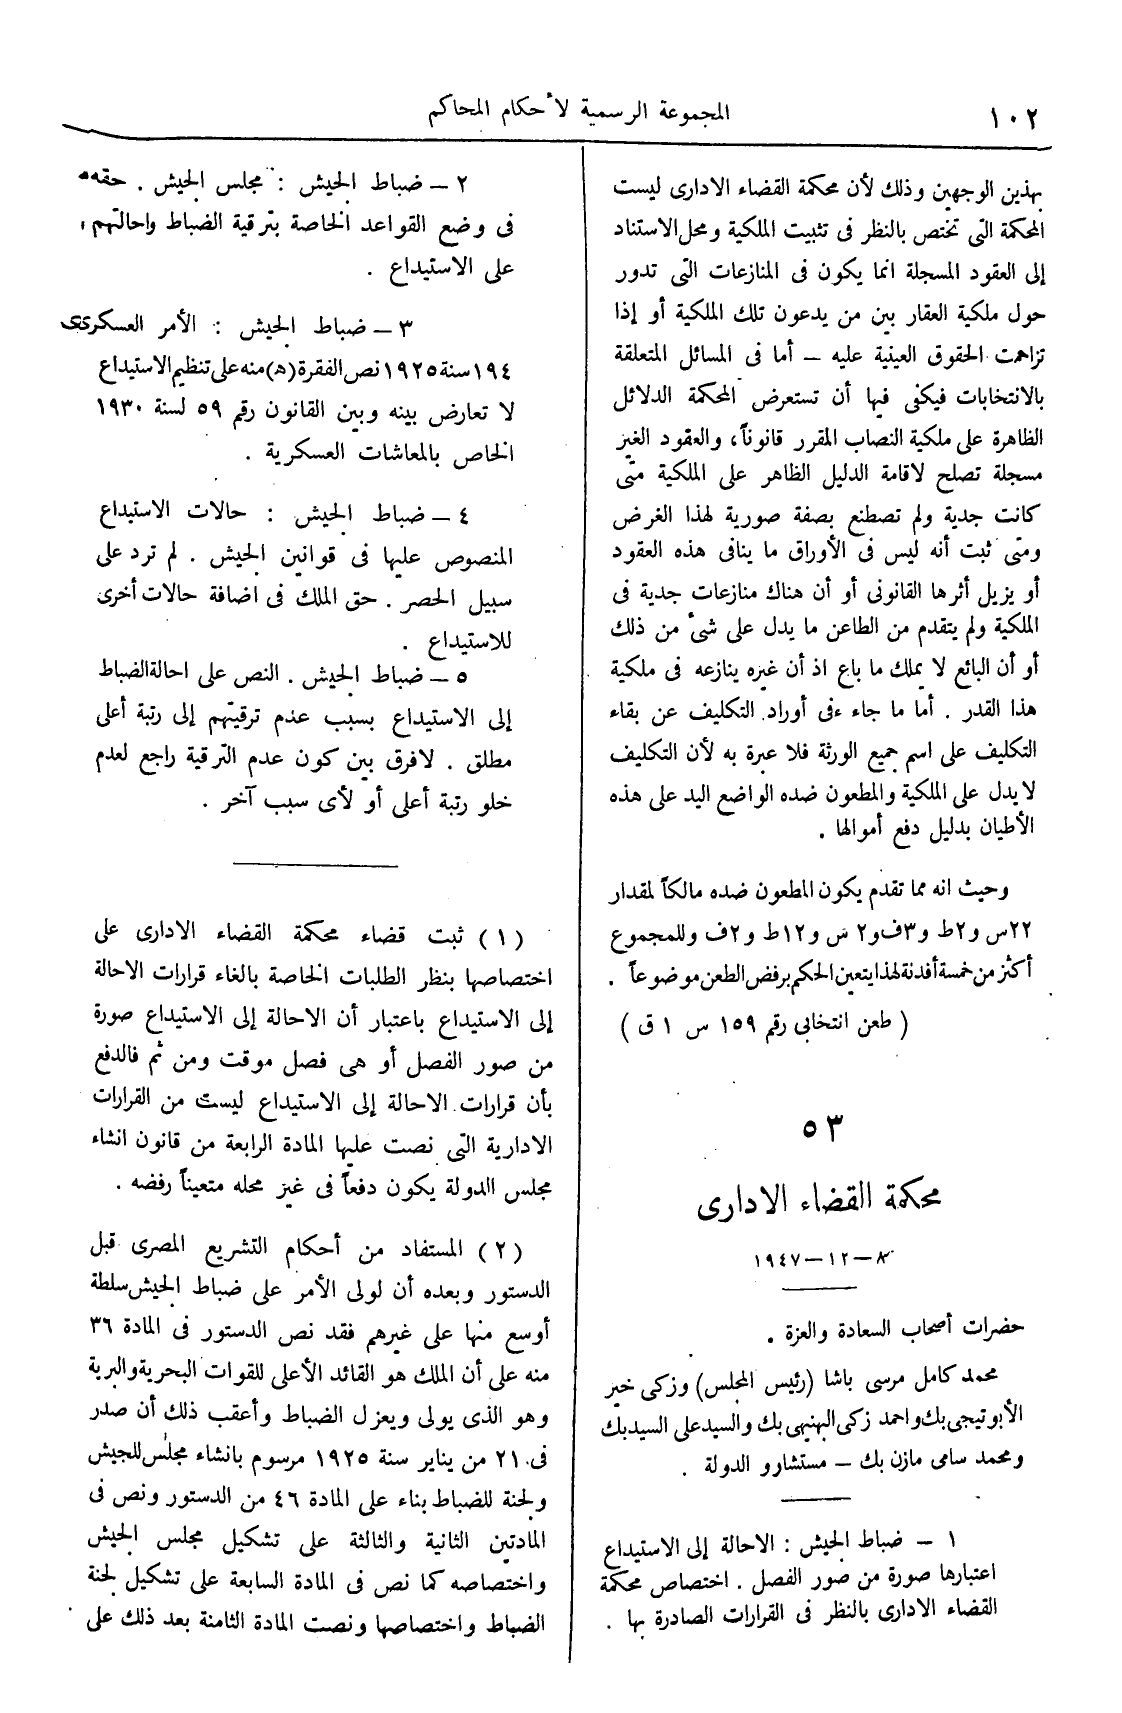 ١٠٢
المجموعة الرسمية لأحكام المحاكم
بهذين الوجهين وذلك لأن محكمة القضاء الادارى ليست
المحكمة التى تختص بالنظر فى تثبيت الملكية ومحل الاستناد
إلى العقود المسجلة انما يكون فى المنازعات التى تدور
حول ملكية العقار بين من يدعون تلك الملكية أو إذا
تزاحمت الحقوق العينية عليه – أما فى المسائل المتعلقة
بالانتخابات فيكفى فيها أن تستعرض المحكمة الدلائل
الظاهرة على ملكية النصاب المقرر قانوناً، والعقود الغير
مسجلة تصلح لاقامة الدليل الظاهر على الملكية متى
كانت جدية ولم تصطنع بصفة صورية لهذا الغرض
ومتى ثبت أنه ليس فى الأوراق ما ينافى هذه العقود
أو يزيل أثرها القانونى أو أن هناك منازعات جدية فى
الملكية ولم يتقدم من الطاعن ما يدل على شىٔ من ذلك
أو أن البائع لا يملك ما باع اذ أن غيره ينازعه فى ملكية
هذا القدر . أما ما جاء ءفى أوراد التكليف عن بقاء
التكليف على اسم جميع الورثة فلا عبرة به لأن التكليف
لا يدل على الملكية والمطعون ضده الواضع اليد على هذه
الأطيان بدليل دفع أموالها .
وحيث انه مما تقدم يكون المطعون ضده مالكاً لمقدار
٢٢س و٢ط و٣ف و٢ س و١٢ط و٢ف وللمجموع
أكثر من خمسة أفدنة لهذا يتعين الحكم برفض الطعن موضوعاً .
( طعن انتخابى رقم ١٥٩ س ١ ق )
٥٣
محكمة القضاء الادارى
٨–١٢–١٩٤٧
حضرات أصحاب السعادة والعزة .
محمد كامل مرسى باشا (رئيس المجلس) وزكى خير
الأبوتيجى بك واحمد زكى البهنيهى بك والسيد على السيد بك
ومحمد سامى مازن بك – مستشارو الدولة .
١ – ضباط الجيش : الاحالة إلى الاستيداع
اعتبارها صورة من صور الفصل . اختصاص محكمة
القضاء الادارى بالنظر فى القرارات الصادرة بها .
٢ – ضباط الجيش : مجلس الجيش . حقه
فى وضع القواعد الخاصة بترقية الضباط واحالتهم
على الاستيداع .
٣ – ضباط الجيش : الأمر العسكرى
١٩٤ سنة ١٩٢٥ نص الفقرة (ھ) منه على تنظيم الاستيداع
لا تعارض بينه وبين القانون رقم ٥٩ لسنة ١٩٣٠
الخاص بالمعاشات العسكرية .
٤ – ضباط الجيش : حالات الاستيداع
المنصوص عليها فى قوانين الجيش . لم ترد على
سبيل الحصر . حق الملك فى اضافة حالات أخرى
للاستيداع .
٥ – ضباط الجيش . النص على احالة الضباط
إلى الاستيداع بسبب عدم ترقيتهم إلى رتبة أعلى
مطلق . لافرق بين كون عدم الترقية راجع لعدم
خلو رتبة أعلى أو لأى سبب آخر .
(١) ثبت قضاء محكمة القضاء الادارى على
اختصاصها بنظر الطلبات الخاصة بالغاء قرارات الاحالة
إلى الاستيداع باعتبار أن الاحالة إلى الاستيداع صورة
من صور الفصل أو هى فصل موقت ومن ثم فالدفع
بأن قرارات الاحالة إلى الاستيداع ليست من القرارات
الادارية التى نصت عليها المادة الرابعة من قانون انشاء
مجلس الدولة يكون دفعاً فى غير محله متعيناً رفضه .
(٢) المستفاد من أحكام التشريع المصرى قبل
الدستور وبعده أن لولى الأمر على ضباط الجيش سلطة
أوسع منها على غيرهم فقد نص الدستور فى المادة ٣٦
منه على أن الملك هو القائد الأعلى للقوات البحرية والبرية
وهو الذى يولى ويعزل الضباط وأعقب ذلك أن صدر
فى ٢١ من يناير سنة ١٩٢٥ مرسوم بانشاء مجلس للجيش
ولجنة للضباط بناء على المادة ٤٦ من الدستور ونص فى
المادتين الثانية والثالثة على تشكيل مجلس الجيش
واختصاصه كما نص فى المادة السابعة على تشكيل لجنة
الضباط واختصاصها ونصت المادة الثامنة بعد ذلك على